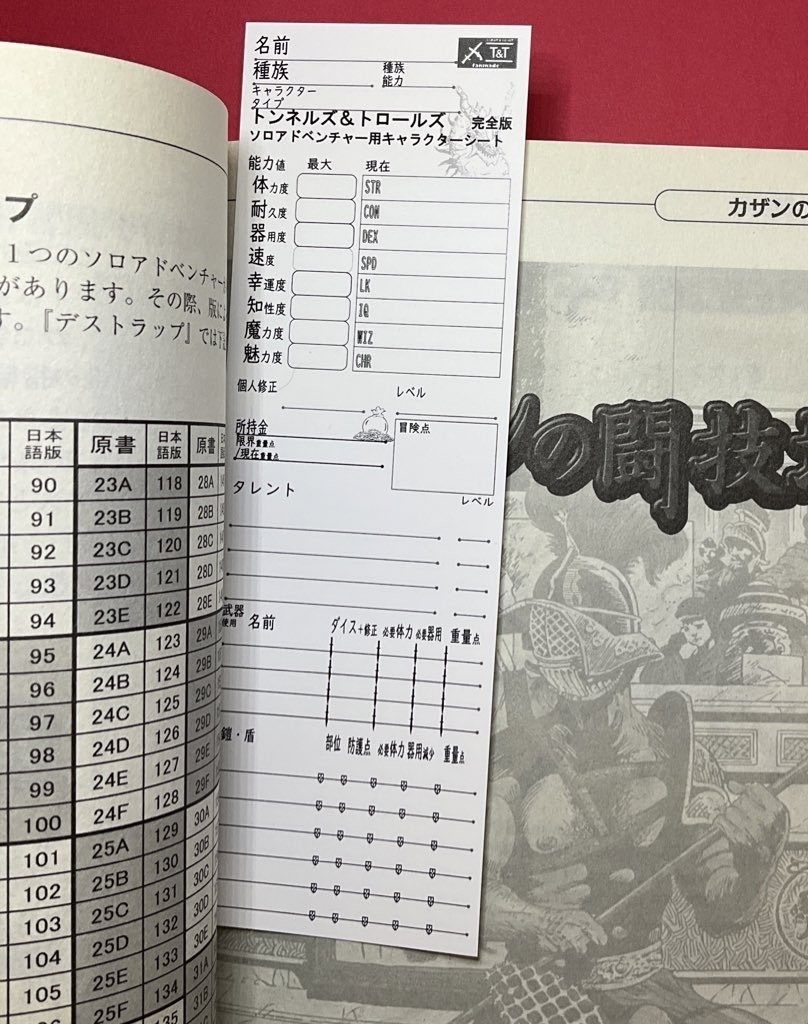 名前
T&T
fanmade
種族
種族
能力
キャラクター
タイプ
トンネルズ&トロールズ 完全版
ソロアドベンチャー用キャラクターシート
能力値 最大 現在
体力度 STR
耐久度 CON
器用度 DEX
速度 SPD
幸運度 LK
知性度 IQ
魔力度 WIZ
魅力度 CHR
個人修正 レベル
所持金 冒険点
限界重量点
/現在重量点
タレント レベル
武器
使用 名前 ダイス+修正 必要体力 必要器用 重量点
鎧・盾 部位 防護点 必要体力 器用減少 重量点
プ
1つのソロアドベンチャー
があります。その際、版によ
す。『デストラップ』では下記
日本語版 原書 日本語版 原書
90 23A 118 28A
91 23B 119 28B
92 23C 120 28C
93 23D 121 28D
94 23E 122 28E
95 24A 123 29A
96 24B 124 29B
97 24C 125 29C
98 24D 126 29D
99 24E 127 29E
100 24F 128 29F
101 25A 129 30A
102 25B 130 30B
103 25C 131 30C
104 25D 132 30D
105 25E 133 30E
25F 134 31A
135 31B
カザンの
の闘技